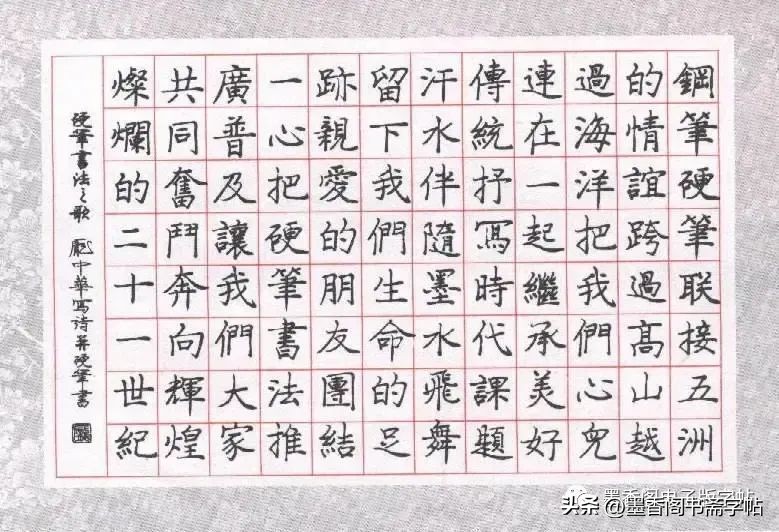 鋼筆硬筆联接五洲
的情誼跨過髙山越
過海洋把我們心兒
連在一起繼承美好
傳統抒寫時代課題
汗水伴隨墨水飛舞
留下我們生命的足
跡親愛的朋友團結
一心把硬筆書法推
廣普及讓我們大家
共同奮鬥奔向輝煌
燦爛的二十一世紀
硬筆書法之歌 龐中華寫诗并硬筆書
墨香阁电子版字帖
头条 @墨香阁书斋字帖